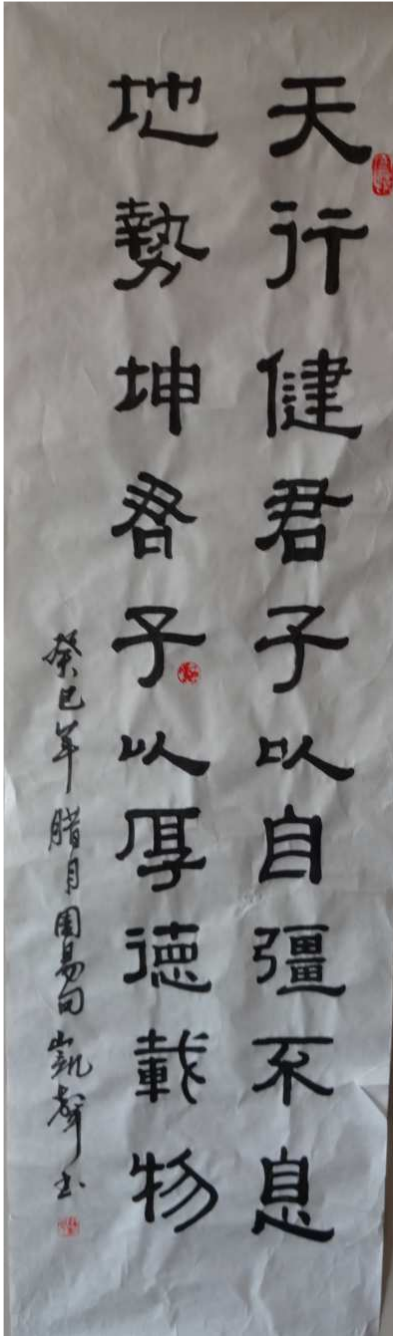 天行健君子以自彊不息
地勢坤君子以厚德載物
癸巳年腊月周易句凱聲书